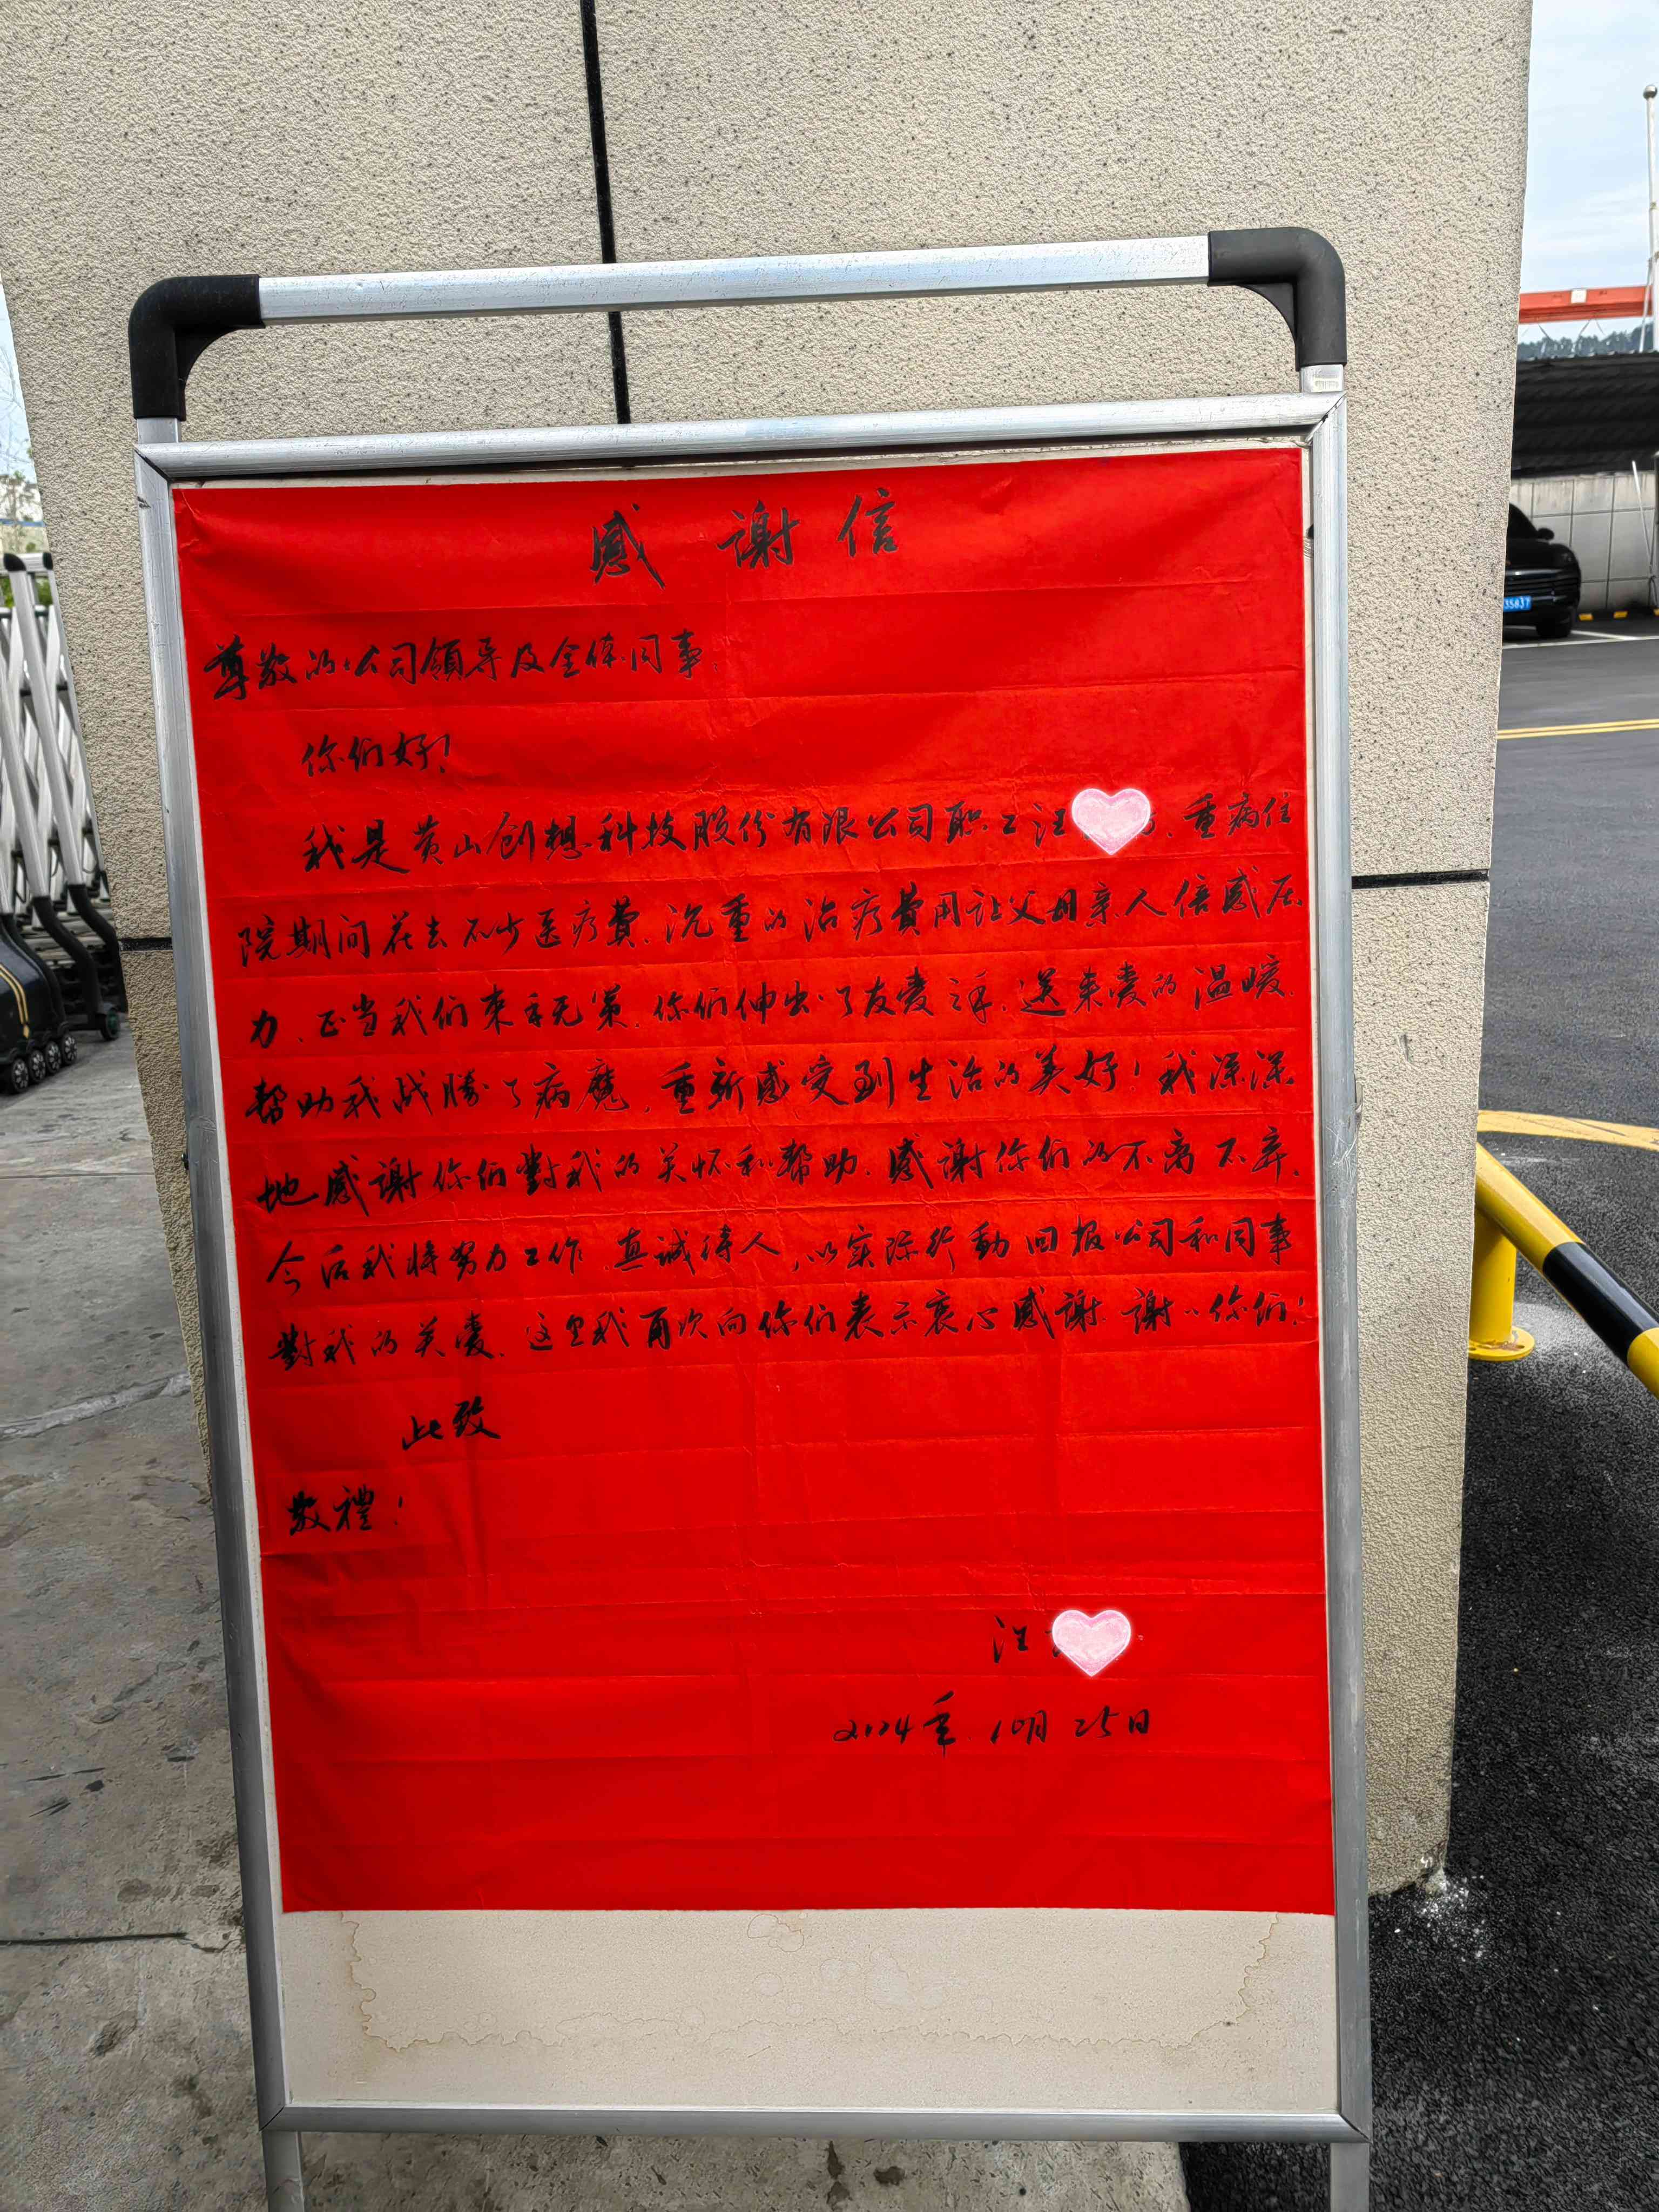 感謝信
尊敬的公司領导及全体同事：
你们好！
我是黄山创想科技股份有限公司职工汪 重病住
院期间花去不少医疗費.沉重的治疗費用让父母亲人倍感压
力.正当我们束手无策.你们伸出了友爱之手.送来爱的温暖.
帮助我战勝了病魔.重新感受到生活的美好！我深深
地感謝你们對我的关怀和帮助.感謝你们的不离不弃.
今后我将努力工作.真誠待人.以实际行動回报公司和同事
對我的关爱.这里我再次向你们表示衷心感謝.謝〃你们！
此致
敬禮！
汪
2024年.10月25日
35837